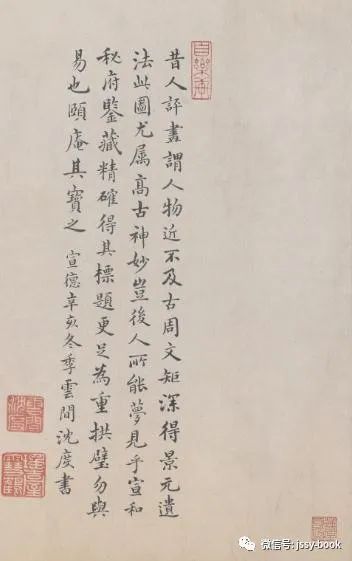 昔人評畫謂人物近不及古周文矩深得景元遺
法此圖尤属高古神妙豈後人所能夢見乎宣和
秘府鑒藏精確得其標題更足為重拱璧勿與
易也頤庵其寶之 宣德辛亥冬季雲間沈度書
自樂
微信号: jssy-book